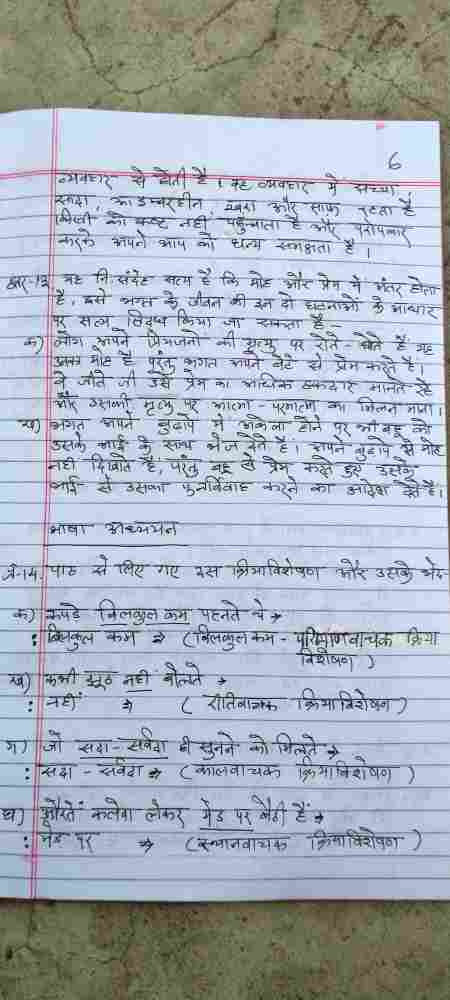 6
व्यवहार से होती है। वह व्यवहार में सच्चा,
सादा, आडम्बरहीन, खरा और साफ रहता है
किसी को कष्ट नहीं पहुंचाता है और परोपकार
करके अपने आप को धन्य समझता है।
उत्तर-13 यह नि:संदेह सत्य है कि मोह और प्रेम में अंतर होता
है, इसे भगत के जीवन की इन दो घटनाओं के आधार
पर सत्य सिद्ध किया जा सकता है-
क) लोग अपने प्रियजनों की मृत्यु पर रोते-धोते हैं यह
उनका मोह है परंतु भगत अपने बेटे से प्रेम करते हैं।
वे जीते जी उसे प्रेम का अधिक हकदार मानते रहे
और उसकी मृत्यु पर आत्मा-परमात्मा का मिलन माना।
ख) भगत अपने बुढ़ापे में अकेला होने पर भी बहू को
उसके भाई के साथ भेज देते हैं। अपने बुढ़ापे से मोह
नहीं दिखाते हैं, परंतु बहू से प्रेम करते हुए उसके
भाई से उसका पुनर्विवाह करने का आदेश देते हैं।
भाषा अध्ययन
प्रं-14. पाठ से लिए गए दस क्रियाविशेषण और उसके भेद
क) कपड़े बिलकुल कम पहनते थे →
: बिलकुल कम ⇒ (बिलकुल कम - परिमाणवाचक क्रिया
विशेषण)
ख) कभी झूठ नहीं बोलते →
: नहीं ⇒ (रीतिवाचक क्रियाविशेषण)
ग) जो सदा-सर्वदा ही सुनने को मिलते →
: सदा-सर्वदा ⇒ (कालवाचक क्रियाविशेषण)
घ) औरतें कलेवा लेकर मेंड पर बैठी हैं →
: मेंड पर ⇒ (स्थानवाचक क्रियाविशेषण)